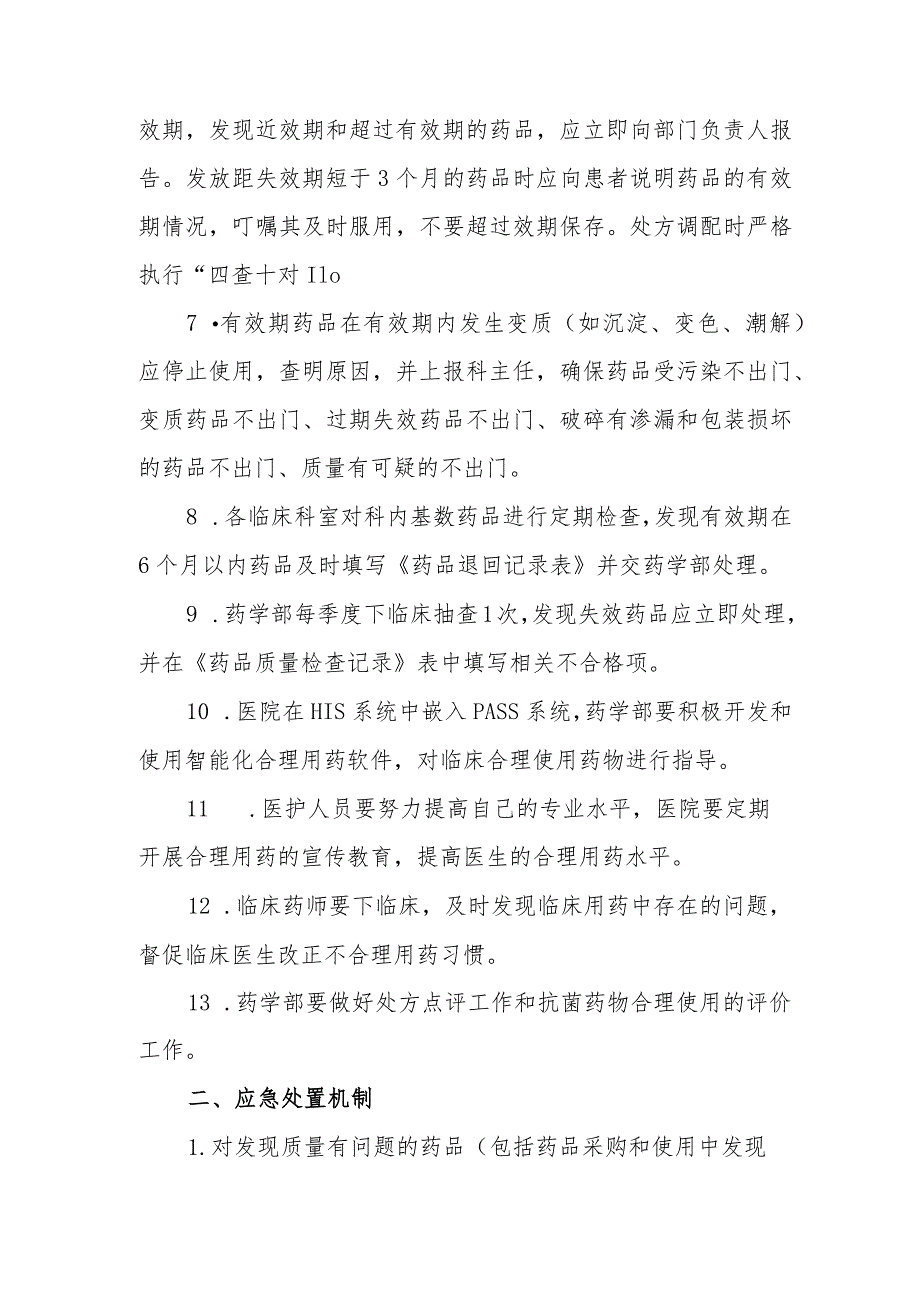 效期，发现近效期和超过有效期的药品，应立即向部门负责人报
告。发放距失效期短于3个月的药品时应向患者说明药品的有效
期情况，叮嘱其及时服用，不要超过效期保存。处方调配时严格
执行“四查十对Ilo
7 •有效期药品在有效期内发生变质（如沉淀、变色、潮解）
应停止使用，查明原因，并上报科主任，确保药品受污染不出门、
变质药品不出门、过期失效药品不出门、破碎有渗漏和包装损坏
的药品不出门、质量有可疑的不出门。
8 .各临床科室对科内基数药品进行定期检查，发现有效期在
6个月以内药品及时填写《药品退回记录表》并交药学部处理。
9 .药学部每季度下临床抽查1次，发现失效药品应立即处理，
并在《药品质量检查记录》表中填写相关不合格项。
10 .医院在HIS系统中嵌入PASS系统，药学部要积极开发和
使用智能化合理用药软件，对临床合理使用药物进行指导。
11 .医护人员要努力提高自己的专业水平，医院要定期
开展合理用药的宣传教育，提高医生的合理用药水平。
12 .临床药师要下临床，及时发现临床用药中存在的问题，
督促临床医生改正不合理用药习惯。
13 .药学部要做好处方点评工作和抗菌药物合理使用的评价
工作。
二、应急处置机制
1.对发现质量有问题的药品（包括药品采购和使用中发现